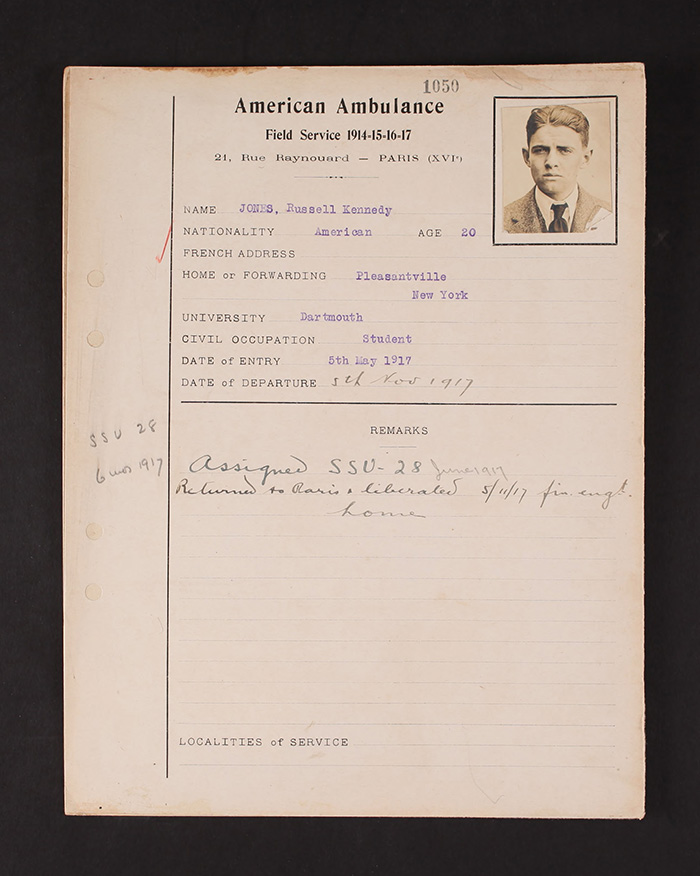 1050
American Ambulance
Field Service 1914-15-16-17
21, Rue Raynouard — PARIS (XVIe)
NAME JONES, Russell Kennedy
NATIONALITY American AGE 20
FRENCH ADDRESS
HOME or FORWARDING Pleasantville
New York
UNIVERSITY Dartmouth
CIVIL OCCUPATION Student
DATE of ENTRY 5th May 1917
DATE of DEPARTURE 5th Nov 1917
REMARKS
SSU 28
6 mos 1917
Assigned SSU-28 June 1917
Returned to Paris & liberated 5/11/17 fin. engt.
home
LOCALITIES of SERVICE